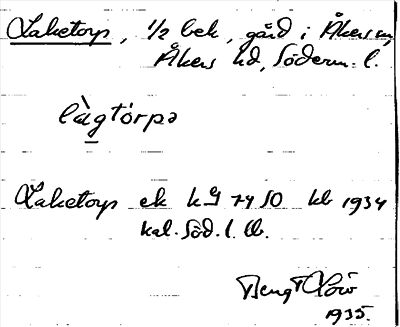 Laketorp, 1/2 bek, gård i Åkers sn,
Åkers hd, Söderm. l.
làgtórpə
Laketorp ek kg 7450 kb 1934
kal. Söd. l. lb.
Bengt Löw
1935.